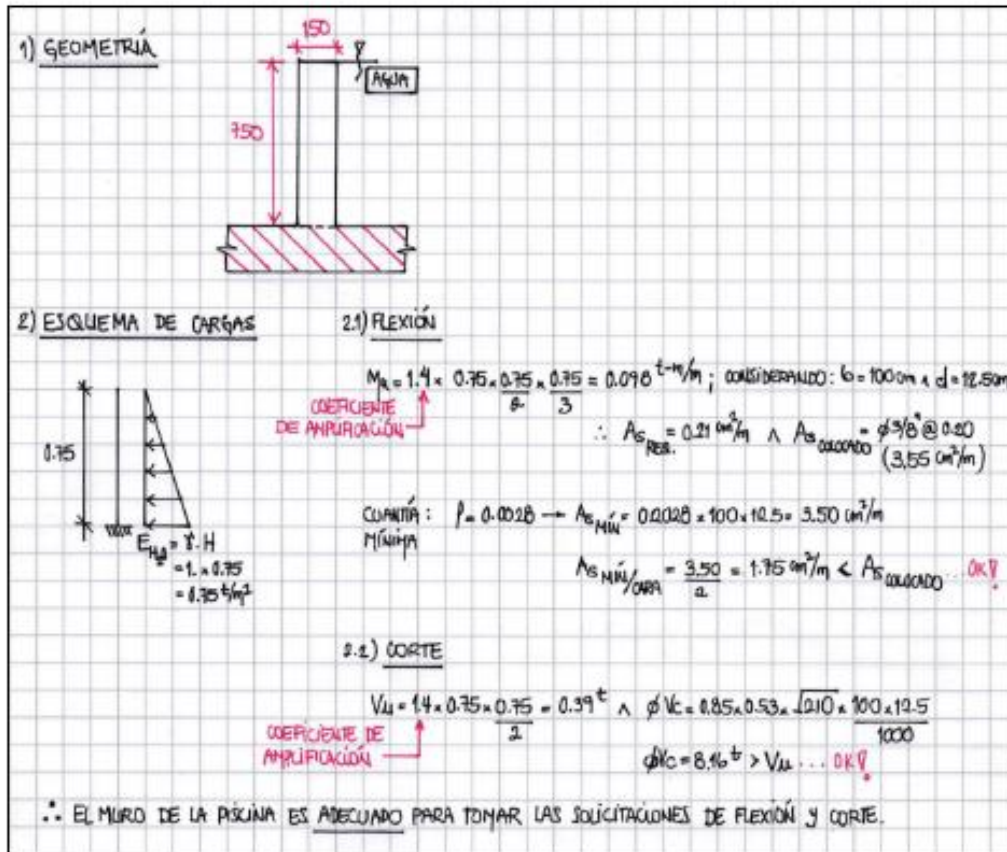 1) GEOMETRÍA
150
AGUA
750
2) ESQUEMA DE CARGAS
0.75
E_H₂O = γ.H
= 1. x 0.75
= 0.75 t/m²
2.1) FLEXIÓN
Mu = 1.4 x 0.75 x 0.75/2 x 0.75/3 = 0.098 t-m/m ; CONSIDERANDO: b = 100 cm ∧ d = 12.50cm
COEFICIENTE
DE AMPLIFICACIÓN
∴ As REQ. = 0.21 cm²/m ∧ As COLOCADO = φ3/8" @ 0.20
(3.55 cm²/m)
CUANTÍA MÍNIMA : ρ = 0.0028 → As MÍN = 0.0028 x 100 x 12.5 = 3.50 cm²/m
As MÍN/CARA = 3.50/2 = 1.75 cm²/m < As COLOCADO ... OK!
2.2) CORTE
Vu = 1.4 x 0.75 x 0.75/2 = 0.39 t ∧ φVc = 0.85 x 0.53 x √210 x 100 x 12.5/1000
COEFICIENTE DE
AMPLIFICACIÓN
φVc = 8.16 t > Vu ... OK!
∴ EL MURO DE LA PISCINA ES ADECUADO PARA TOMAR LAS SOLICITACIONES DE FLEXIÓN Y CORTE.